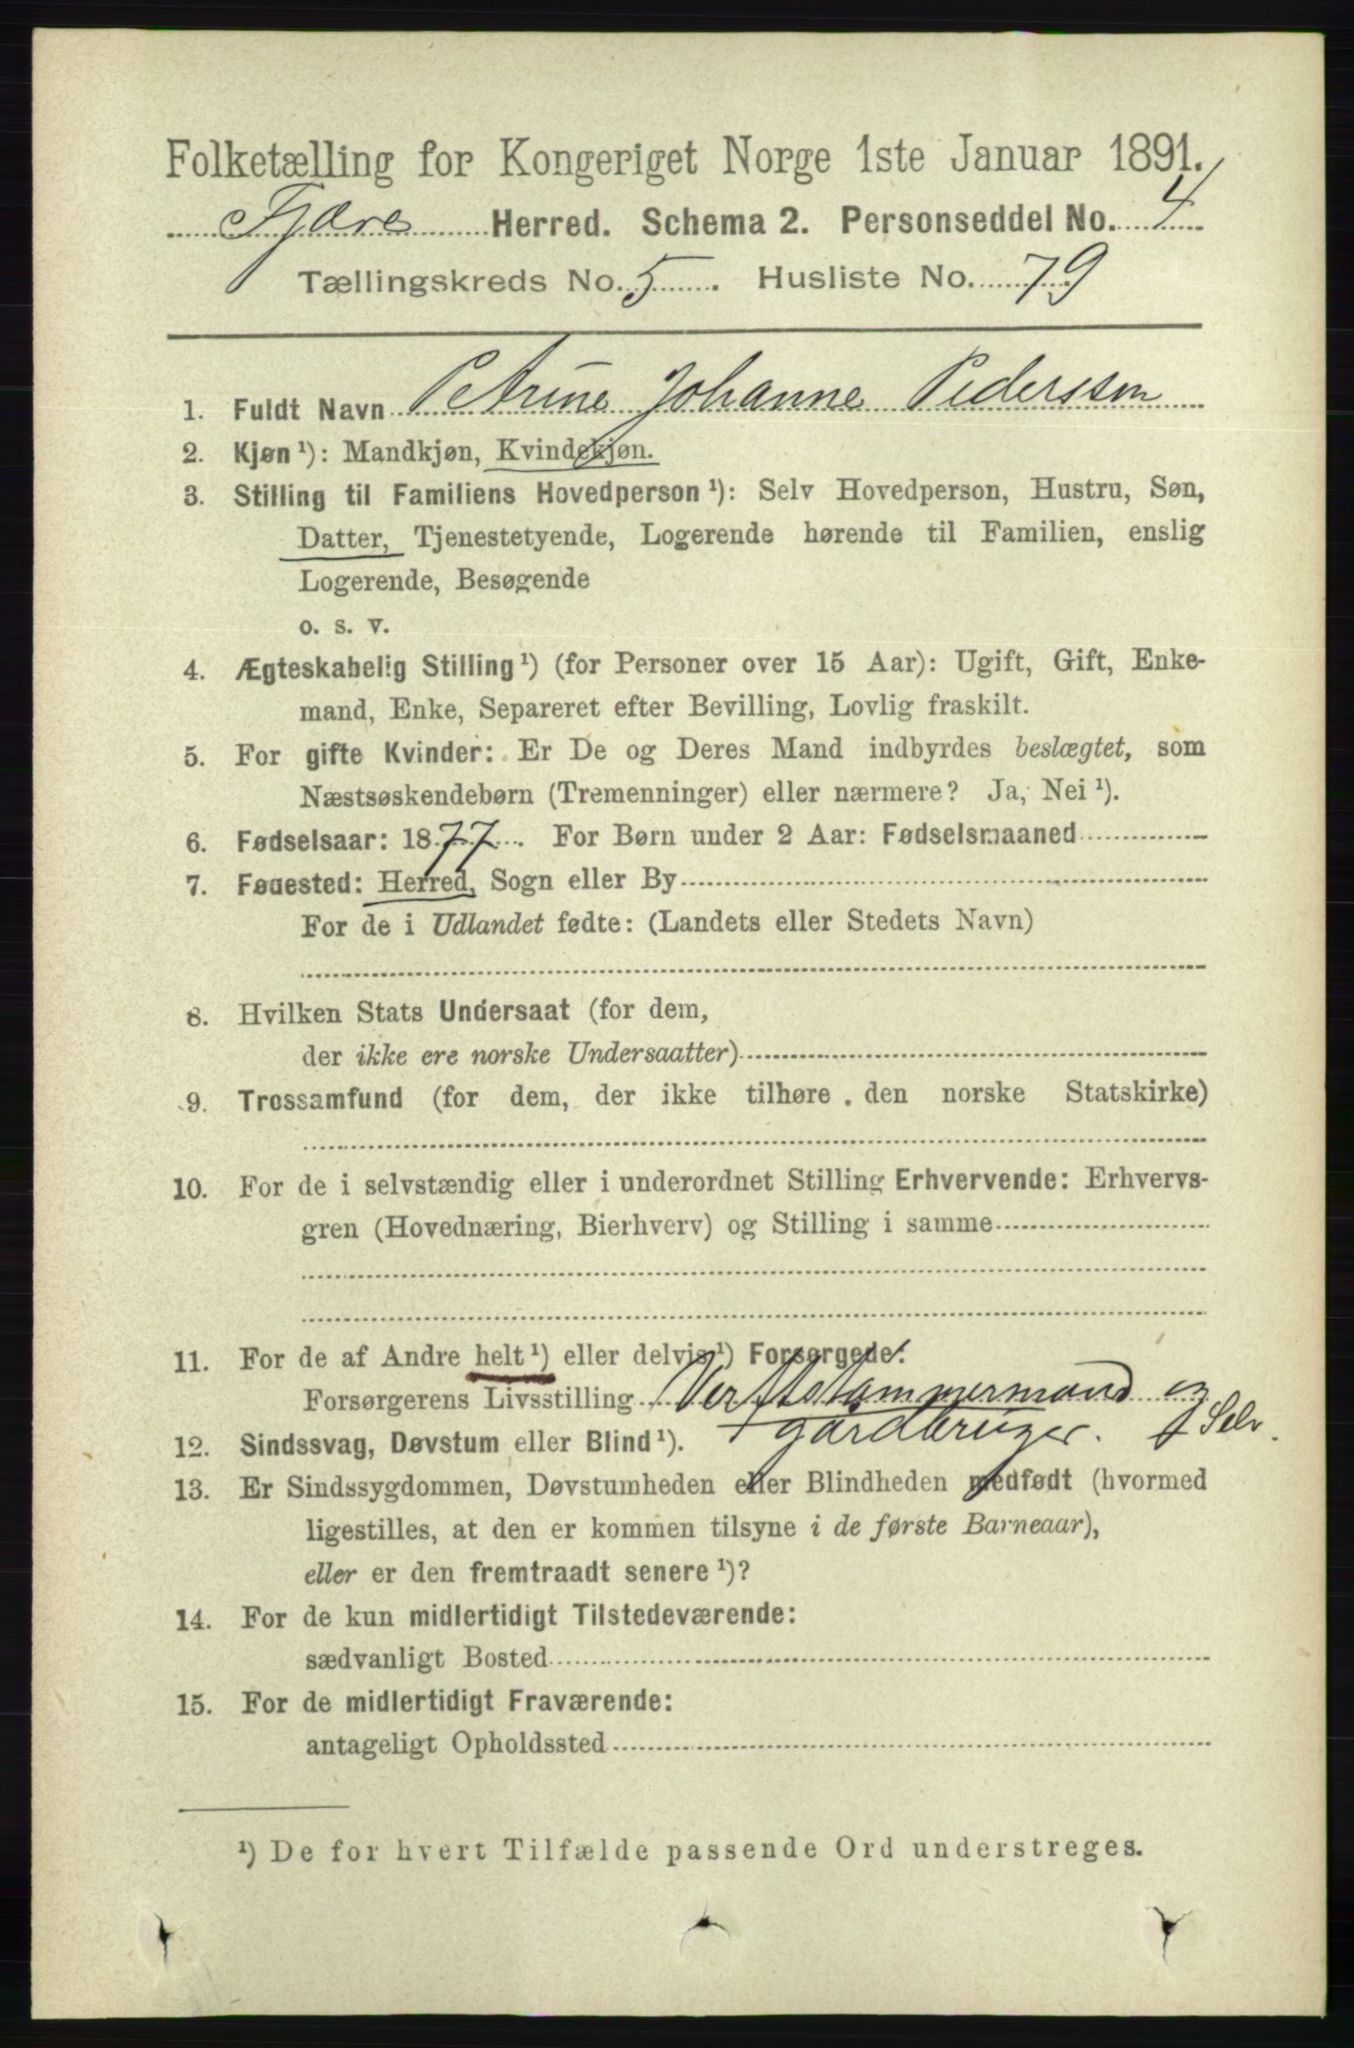 Folketælling for Kongeriget Norge 1ste Januar 1891.
Fjære Herred. Schema 2. Personseddel No. 4
Tællingskreds No. 5. Husliste No. 79
1. Fuldt Navn Petrine Johanne Pederssen
2. Kjøn ¹): Mandkjøn, Kvindekjøn.
3. Stilling til Familiens Hovedperson ¹): Selv Hovedperson, Hustru, Søn,
Datter, Tjenestetyende, Logerende hørende til Familien, enslig
Logerende, Besøgende
o. s. v.
4. Ægteskabelig Stilling ¹) (for Personer over 15 Aar): Ugift, Gift, Enke-
mand, Enke, Separeret efter Bevilling, Lovlig fraskilt.
5. For gifte Kvinder: Er De og Deres Mand indbyrdes beslægtet, som
Næstsøskendebørn (Tremenninger) eller nærmere? Ja, Nei ¹).
6. Fødselsaar: 1877. For Børn under 2 Aar: Fødselsmaaned
7. Føuested: Herred, Sogn eller By
For de i Udlandet fødte: (Landets eller Stedets Navn)
8. Hvilken Stats Undersaat (for dem,
der ikke ere norske Undersaatter)
9. Trossamfund (for dem, der ikke tilhøre den norske Statskirke)
10. For de i selvstændig eller i underordnet Stilling Erhvervende: Erhvervs-
gren (Hovednæring, Bierhverv) og Stilling i samme
11. For de af Andre helt ¹) eller delvis ¹) Forsørgede:
Forsørgerens Livsstilling Verftstømmermand og
12. Sindssvag, Døvstum eller Blind ¹). gårdbruger. Selv.
13. Er Sindssygdommen, Døvstumheden eller Blindheden medfødt (hvormed
ligestilles, at den er kommen tilsyne i de første Barneaar),
eller er den fremtraadt senere ¹)?
14. For de kun midlertidigt Tilstedeværende:
sædvanligt Bosted
15. For de midlertidigt Fraværende:
antageligt Opholdssted
¹) De for hvert Tilfælde passende Ord understreges.